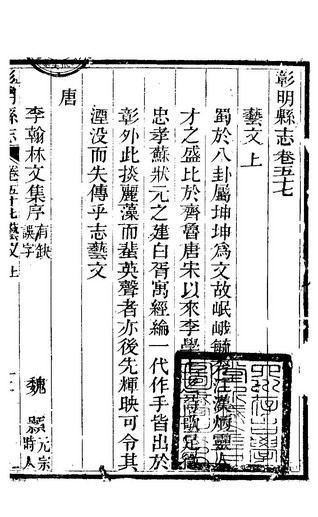 彰明縣志卷五十七
藝文上
蜀於八卦屬坤坤為文故岷峨毓
才之盛比於齊魯唐宋以來李學
忠孝蘇狀元之建白胥寓經綸一代作手皆出於
彰外此掞麗藻而蜚英聲者亦後先輝映可令其
湮没而失傳乎志藝文
唐
李翰林文集序有缺誤字 魏顥元宗時人
彰明縣志 卷五十七藝文上 一